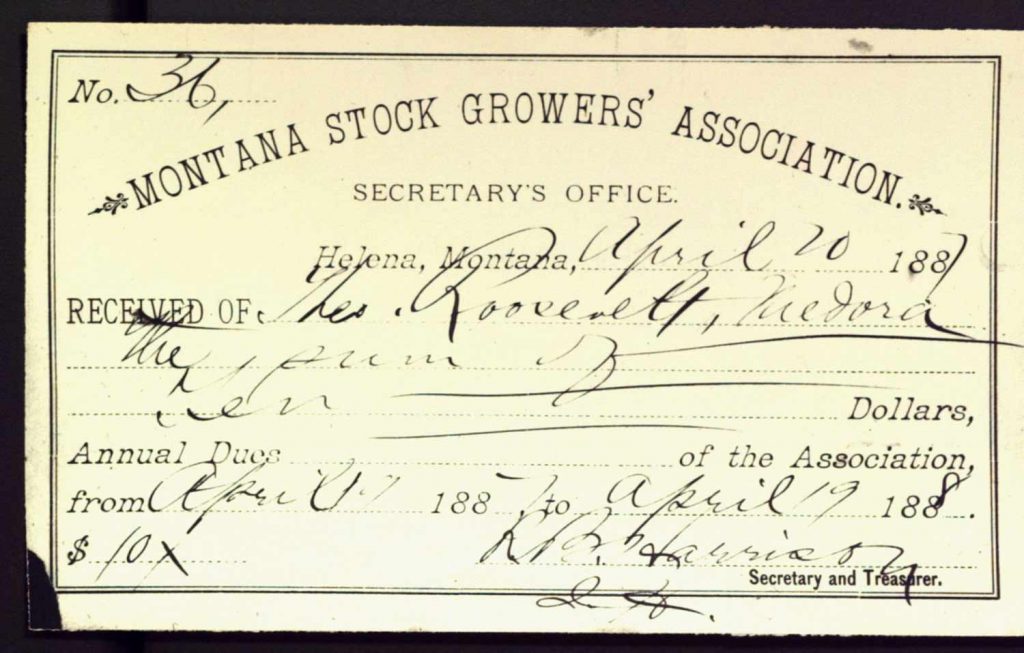 No. 36,
MONTANA STOCK GROWERS' ASSOCIATION.
SECRETARY'S OFFICE.
Helena, Montana, April 20 1887
RECEIVED OF Theo. Roosevelt, Medora
the sum of
Ten Dollars,
Annual Dues of the Association,
from April 1887 to April 19 1888.
$ 10 x
R. B. Harrison
Secretary and Treasurer.